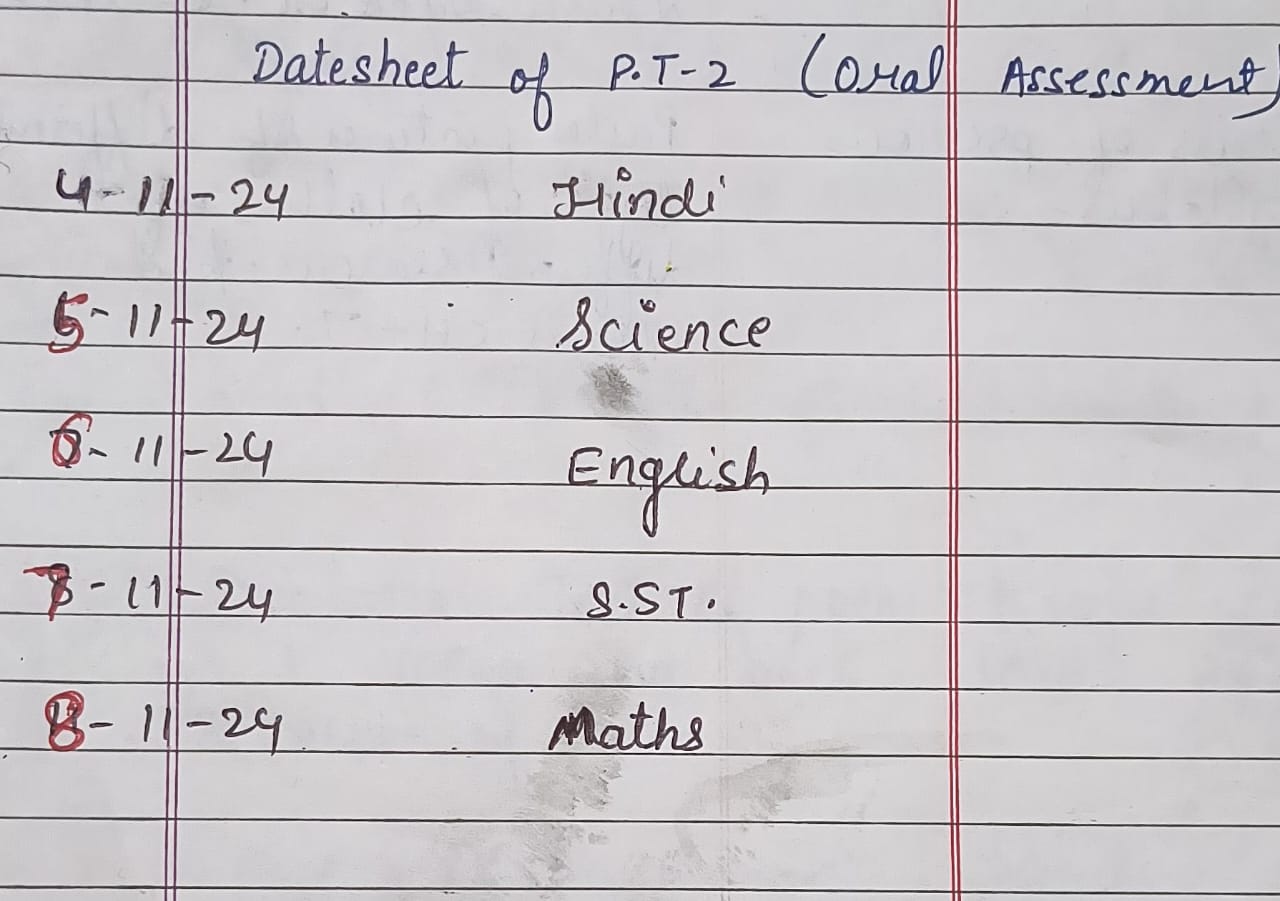 Datesheet of P.T-2 (Oral Assessment)
4-11-24 Hindi
5-11-24 Science
6-11-24 English
7-11-24 S.ST.
8-11-24 Maths